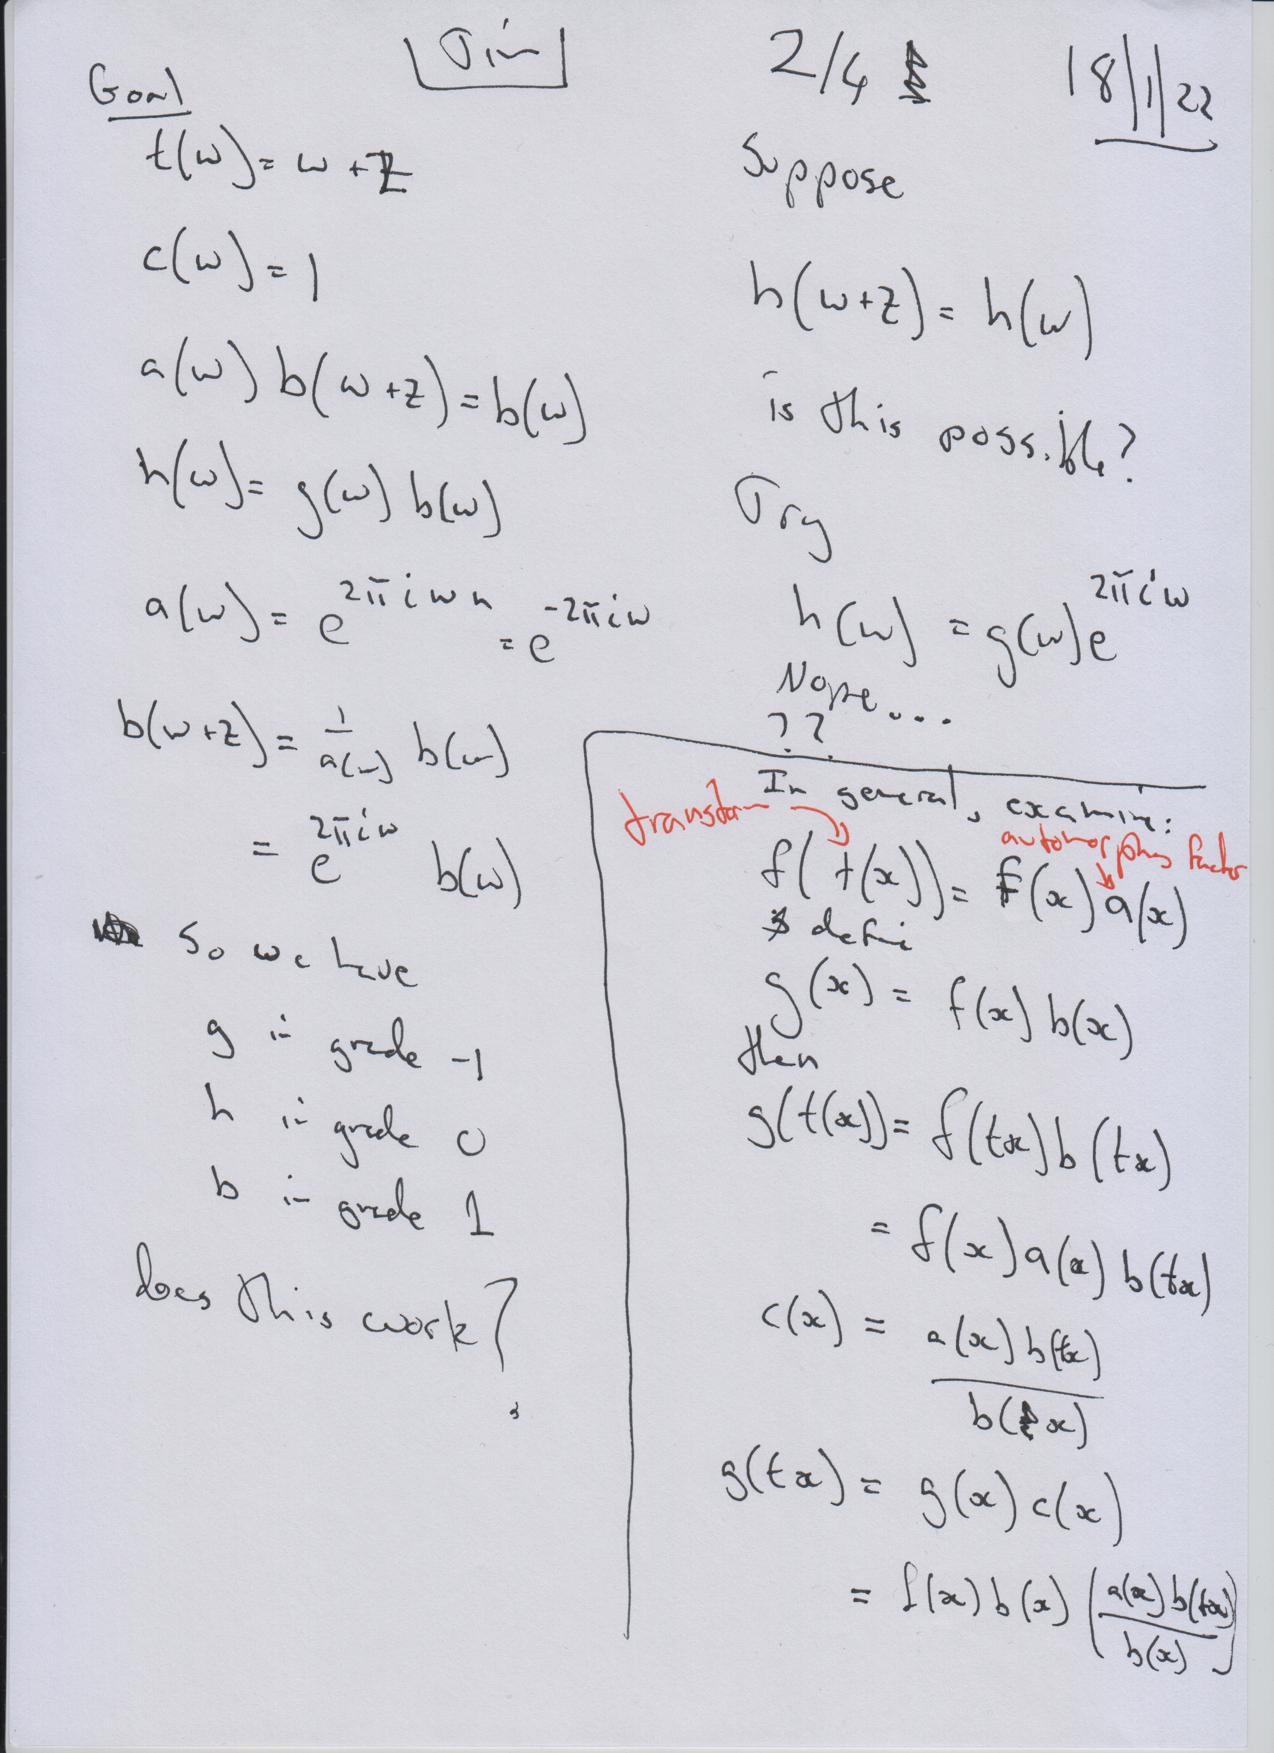 Tim
2/4
18/1/22
Goal
t(w) = w + z
c(w) = 1
a(w) b(w+z) = b(w)
h(w) = g(w) b(w)
a(w) = e^{2πiwn} = e^{-2πiw}
b(w+z) = 1/a(w) b(w)
= e^{2πiw} b(w)
So we have
g in grade -1
h in grade 0
b in grade 1
does this work?
Suppose
h(w+z) = h(w)
is this possible?
Try
h(w) = g(w) e^{2πiw}
Nope...
??
In general, examine:
transform
automorphy factor
f(t(x)) = f(x) a(x)
define
g(x) = f(x) b(x)
then
g(t(x)) = f(tx) b(tx)
= f(x) a(x) b(tx)
c(x) = a(x) b(tx) / b(x)
g(tx) = g(x) c(x)
= f(x) b(x) (a(x) b(tx) / b(x))